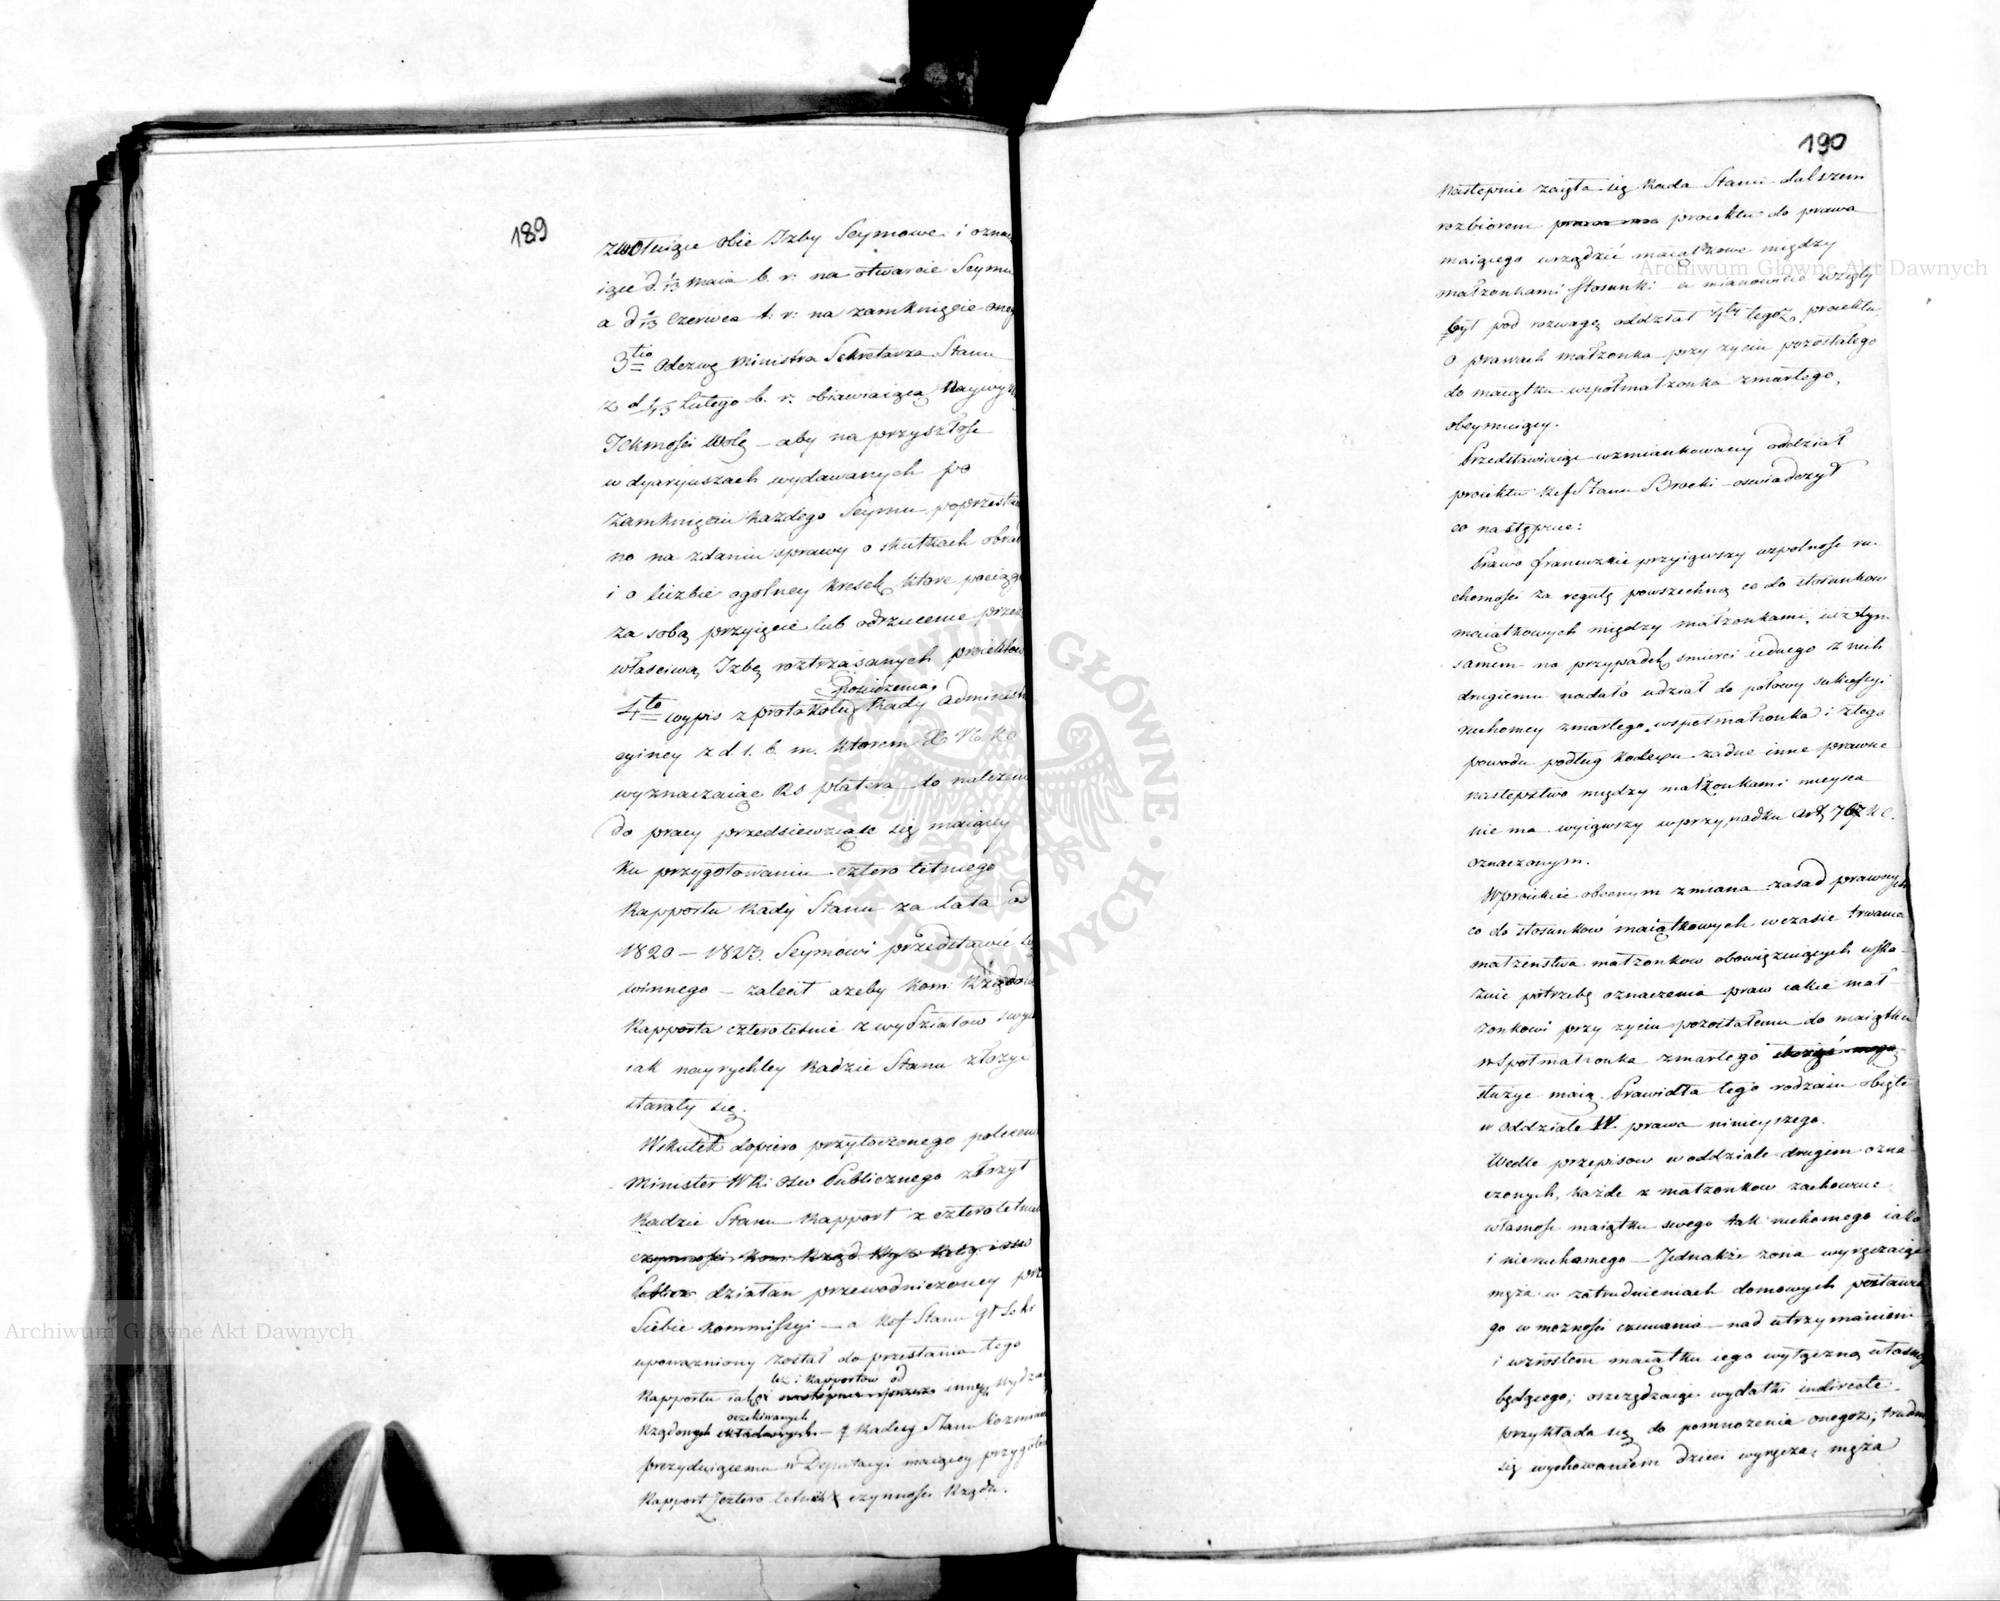 189
zwołuiące obie Izby Seymowe i oznac
iące d. 1/13 Maia b. r. na otwarcie Seymu
a d 1/13 Czerwca t. r. na zamknięcie oneg
3tio Odezwę Ministra Sekretarza Stanu
z d 1/13 Lutego b. r. obiawiaiącą Naywyż
JCKMości Wolę – aby na przyszłość
w dyaryuszach wydawanych po
zamknięciu każdego Seymu poprzesta
no na zdaniu sprawy o skutkach obrad
i o liczbie ogólney kresek, które pociąg
za sobą przyięcie lub odrzucenie przez
właściwą Izbę roztrząsanych proiektów
posiedzenia
4to wypis z protokołu Rady Administ
cyiney z d. 1. b. m. którem X N
wyznaczaiąc RS Platera do należenia
do pracy przedsiewziąść się maiącey
ku przygotowaniu cztero letniego
Rapportu Rady Stanu za Lata od
1820 – 1823. Seymowi przedstawić
winnego – zalecił ażeby Kom: Rządowe
Rapporta czteroletnie z wydziałów swych
iak nayrychley Radzie Stanu złożyć
starały się.
Wskutek dopiero przytoczonego polecenia
Minister WRi Ośw Publicznego złożył
Radzie Stanu Rapport z czteroletnich
czynności Kom: Rząd. Wyzn Relig: i Ośw
Public działań przewodniczoney prz
Siebie Kommissyi – a Ref Stanu gł Sekr
upoważniony został do przesłania tego
też i Rapportów od
Rapportu iako innych Wydz
oczekiwanych
Rządowych składanych – Radcy Stanu Kozmian
prezyduiącemu w Deputacyi maiącey przygoto
Rapport cztero letnich czynności Rządu.
190
Następnie zaięła się Rada Stanu dalszem
rozbiorem proiektu do prawa
maiącego urządzić maiątkowe między
małżonkami stosunki – a mianowicie wzięty
był pod rozwagę oddział 4ty tegoż proiektu,
o prawach małżonka przy życiu pozostałego
do maiątku współmałżonka zmarłego,
obeymuiący.
Przedstawiaiąc wzmiankowany oddział
proiektu Ref Stanu Brocki – oświadczył
co następuie:
Prawo francuzkie przyiąwszy wspólność ru-
chomości za regułę powszechną co do stosunków
maiątkowych między małżonkami, iuż tym
samem na przypadek śmierci iednego z nich
drugiemu nadało udział do połowy sukcessyi
ruchomey zmarłego współmałżonka i z tego
powodu podług Kodexu żadne inne prawne
następstwo między małżonkami mieysca
nie ma wyiąwszy w przypadku Art 767 K C.
oznaczonym.
W proiekcie obecnym zmiana zasad prawnych
co do stosunków maiątkowych w czasie trwania
małżeństwa małżonków obowiązuiących wska-
zuie potrzebę oznaczenia praw iakie mał-
żonkowi przy życiu pozostałemu do maiątku
współmałżonka zmarłego
służyć maią. Prawidła tego rodzaiu obięte
w Oddziale IV. prawa ninieyszego.
Wedle przepisów w oddziale drugim ozna
czonych, każde z małżonków zachowuie
własność maiątku swego tak ruchomego iako
i nieruchomego – Jednakże żona wyręczaiąc
męża w zatrudnieniach domowych postawia
go w możności czuwania – nad utrzymaniem
i wzrostem maiątku iego wyłączną własną
będącego; oszczędzaiąc wydatki indirecte
przykłada się do pomnożenia onegoż; trudni
się wychowaniem dzieci wyręcza męża
Archiwum Główne Akt Dawnych
Archiwum Główne Akt Dawnych
ARCHIWUM GŁÓWNE AKT DAWNYCH